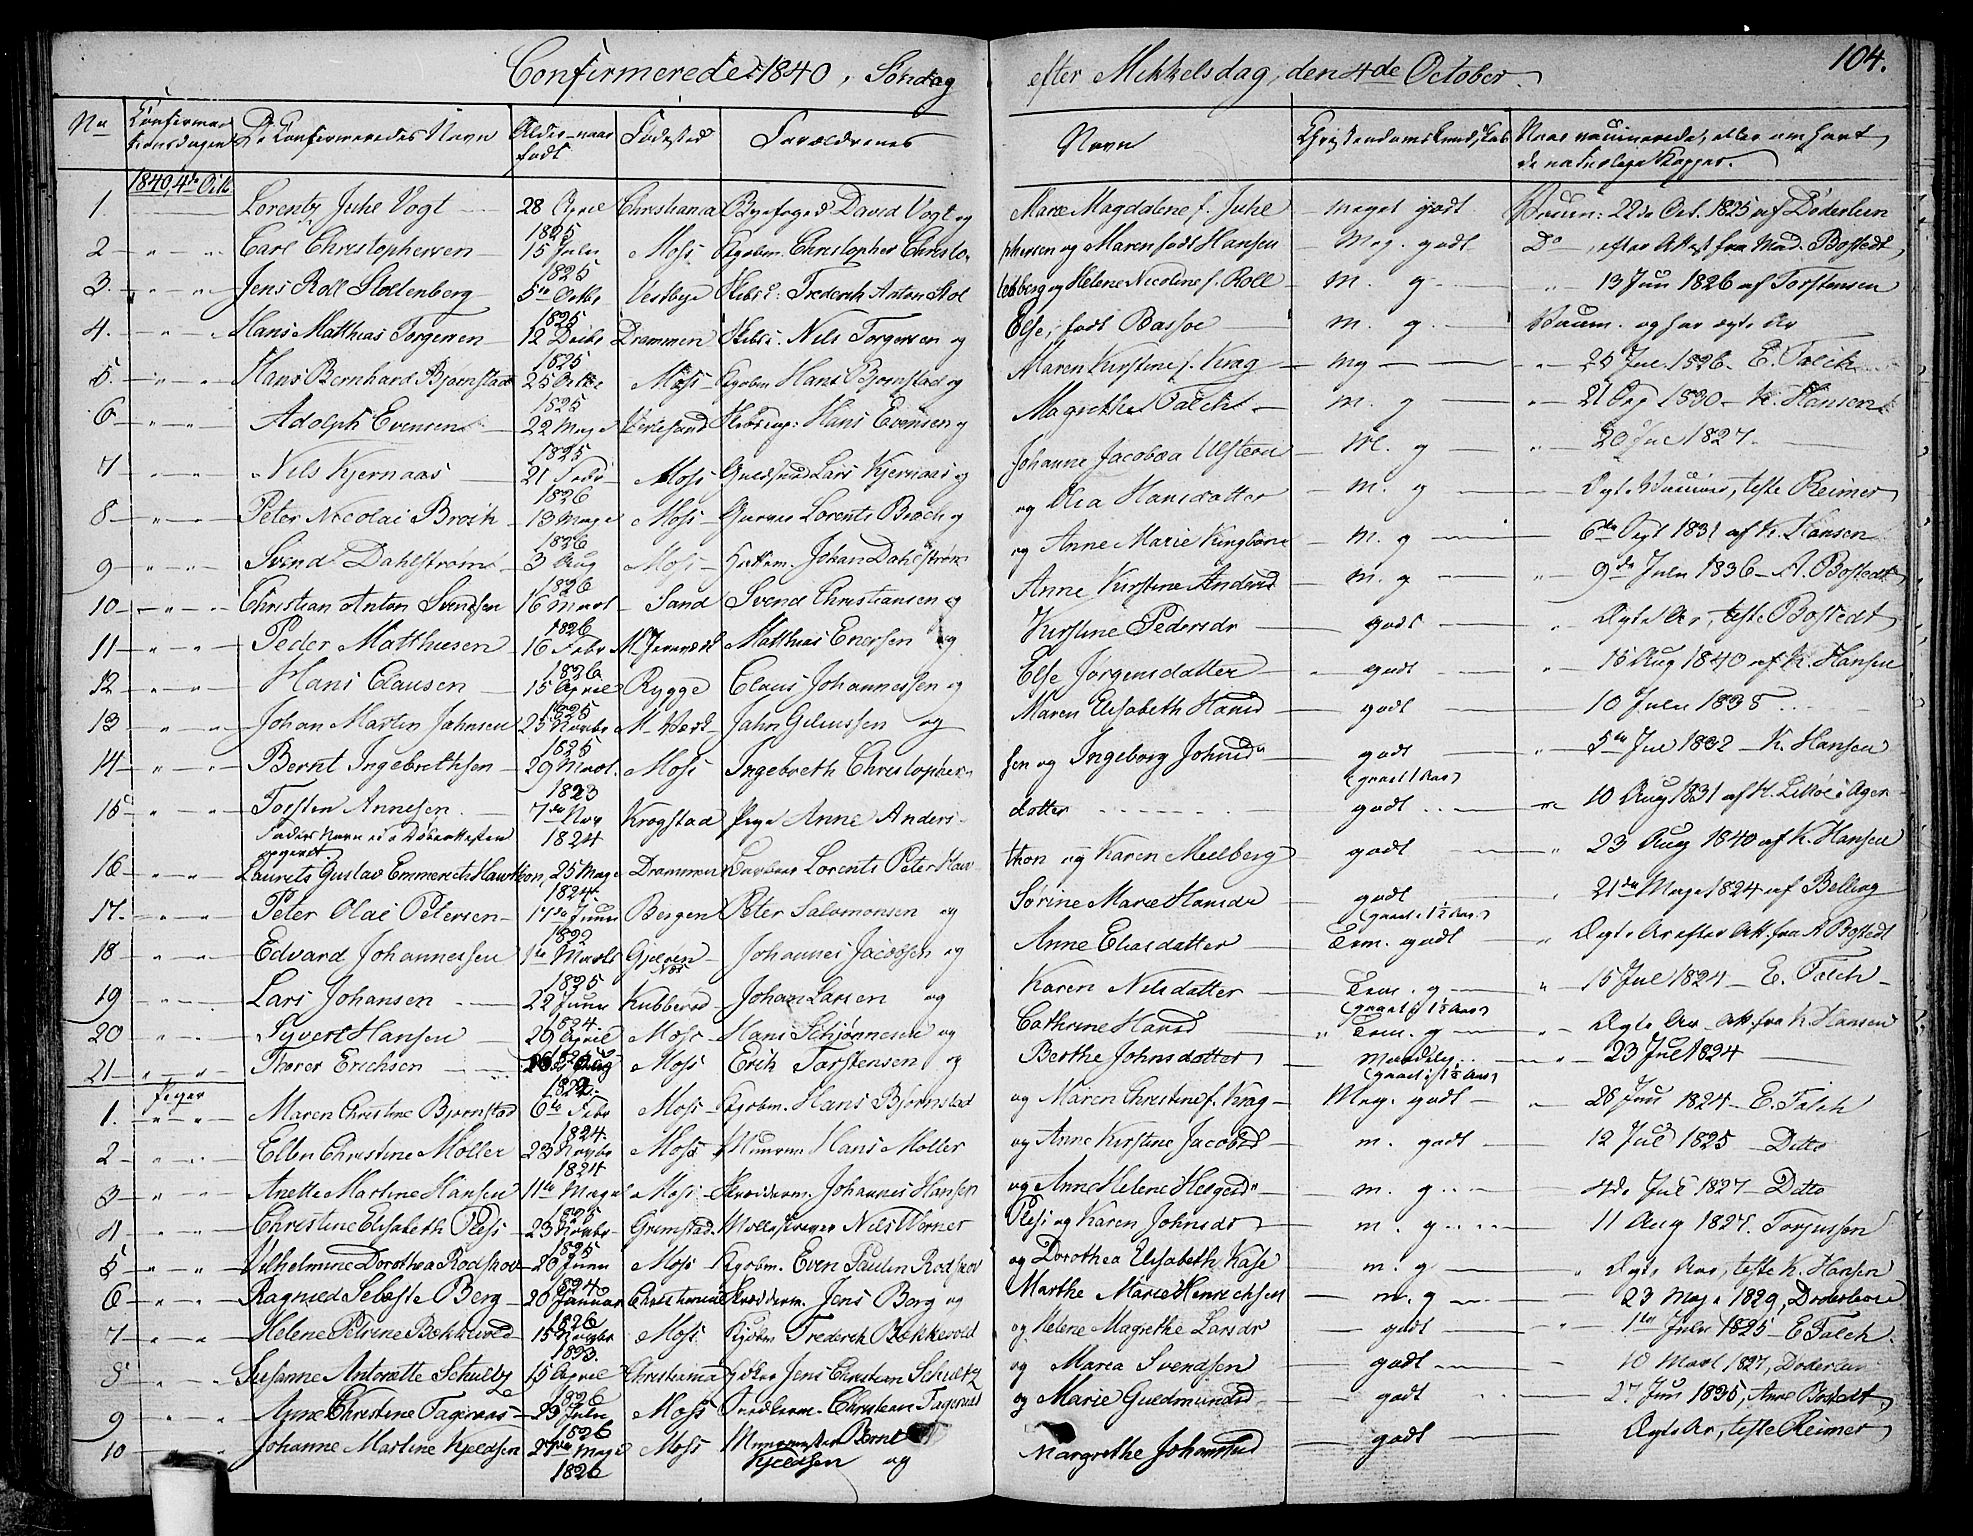 Confirmerede 1840, Søndag efter Mikkelsdag, den 4de October.
104.
No Confirmationsdagen De Confirmeredes Navn Alder, naar født Fødested Forældrenes Navn Christendomskundskab Naar vaccinerede, eller om havt de naturlige Kopper.
1840, 4de Octb
1. Lorentz Juhl Vogt 28 April 1825 Christiania Byefoged David Vogt og Marie Magdalene f. Juhl meget godt Vaccin: 22de Oct. 1825 af Døderlein
2 " " Carl Christophersen 15 Juli 1825 Moss Kjøbm. Christopher Christophersen og Maren født Hansen Meg. godt Do, efter Attest fra Mad. Bostedt
3. " " Jens Roll Stoltenberg 5te Octbr 1825 Vestbye Skibsc: Frederik Anton Stoltenberg og Helene Nicoline f. Roll m. g. " 13 Juni 1826 af Torstensen
4. " " Hans Matthias Torgersen 12 Decbr 1825 Drammen Skibsc: Nils Torgersen og Else, født Bassøe m. g. Vaccin. og har ægte Ar
5. " " Hans Bernhard Bjørnstad 25 Octbr 1825 Moss Kjøbm Hans Bjørnstad og Maren Kirstine f. Krag mg " 25 Jul. 1826. E. Falch
6 " " Adolph Evensen 22 Maj 1825 Hans Evensen og Magrethe Falch m. g " 21 1830 K. Hansen
7 " " Nils Kjernaas 21 Febr 1826 Moss Lars Kjernaas og Johanne Jacobæa Ulsteen M. g " 20 Jul 1827.
8 " " Peter Nicolai Broch 13 Maj 1826 Moss Lorents Broch og Olea Hansdatter m. g Ægte Vaccinar, teste Reimer
9 " " Svend Dahlstrøm 3 Aug 1826 Moss Johan Dahlstrøm og Anne Marie m. g 6te 1831 af K. Hansen
10 " " Christian Anton Svendsen 16 Mart 1826 Sand Svend Christiansen og Anne Kirstine Andersd m. g " 9de Juli 1836 A. Bostedt
11 " " Peder Matthiesen 16 Febr 1826 Matthias Enersen og Kirstine Pedersdr godt " Ægte Ar, teste Bostedt
12 " " Hans Clausen 15 April 1825 Rygge Claus Johannessen og Else Jørgensdatter godt " 15 Aug 1840 af K. Hansen
13 " " Johan Martin Jahnsen 25 Novbr 1825 Jahn og Maren Elisabeth Hansd godt 10 Juli 1838
14 " " Bernt Ingebrethsen 29 Mart. 1823 Moss Ingebreth Christophersen og Ingeborg Johnsd godt " 5te Jul 1832 K. Hansen
15 " " Torsten Annesen 7de Nov 1824 Krogstad Pige Anne Andersdatter godt 10 Aug 1831 af
Faders Navn ei i Døbeattesten opgivet
16 " " Laurits Gustav Emmerets Hawthon 25 Maj 1824. Drammen Lorents Peter Hawthon og Karen Meelberg godt " 23 Aug 1840 af K. Hansen
17. " " Peter Olai Petersen 17de Juni 1822 Bergen Peter Salomonsen og Sørine Marie Hansdr godt " 21de Maj 1824 af Belling
18 " " Edvard Johannesen 1te Marts 1825 Johannes Jacobsen og Anne Eliasdatter Tem. godt " Ægte Ar efter Att. fra A Bostedt
19 " " Lars Johansen 22 Juni 1824. Kubberød Johan Larsen og Karen Nilsdatter Tem. g " 15 Jul 1824 E. Falch
20 " " Syvert Hansen 29 April Moss Hans og Cathrine Hansd " Tem. g " Ægte Ar att. fra K. Hansen
21 " " Thorer Erichsen Aug 1822 Moss Erik Torstensen og Berthe Johnsdatter Maadelig " 23 Jul 1824
Piger
1. " " Maren Christine Bjørnstad 6te Febr 1824. Moss Kjøbm. Hans Bjørnstad og Maren Christine f. Krag Meg. godt " 28 Juni 1824 E. Falch
2 " " Ellen Christine Møller 23 Novbr 1824 Moss Hans Møller og Anne Kirstine Jacobsd m. godt 12 Jul 1825 Ditto
3 " " Anette Martine Hansen 11te Maj 1825 Moss Skræderm. Johannes Hansen og Anne Helene m. g. 4de Jul 1827 Ditto
4 " " Christine Elisabeth Pless 23 Novbr 1825 Grimstad Nils Werner Pless og Karen Johnsdr m. g. 11 Aug 1827. Torgussen
5 " " Vilhelmine Dorothea Rodskov 20 Juni 1824 Moss Kjøbm. Even Paulin Rodskov og Dorothea Elisabeth Kase m. g " Ægte Ar, teste K. Hansen
6 " " Ragnild Seleste Berg 20 Januar 1826 Christiania Skræderm. Jens Berg og Marthe Marie Henrichsen m. g 23 Maj 1829, Døderlein
7 " " Helene Petrine Bækkevold 15 Novbr 1823. Moss Kjøbm Frederik Bækkevold og Helene Magrethe Larsdr godt " 1te Juli 1825 E Falch.
8 " " Susanne Antonette Schultz 15 April 1826 Christiania Jens Christian Schultz og Maria Svendsen godt 10 Mart 1827, Døderlein
9 " " Anne Christine Fagernæs 29 Juli 1826 Moss Christian Fagernæs og Marie Guldmundsd godt 27. Juni 1835, Anne Bostedt.
10 " Johanne Martine Kjeldsen 27de Maj 1826 Moss Bernt Kjeldsen og Margrethe godt Ægte Ar, teste Reimer